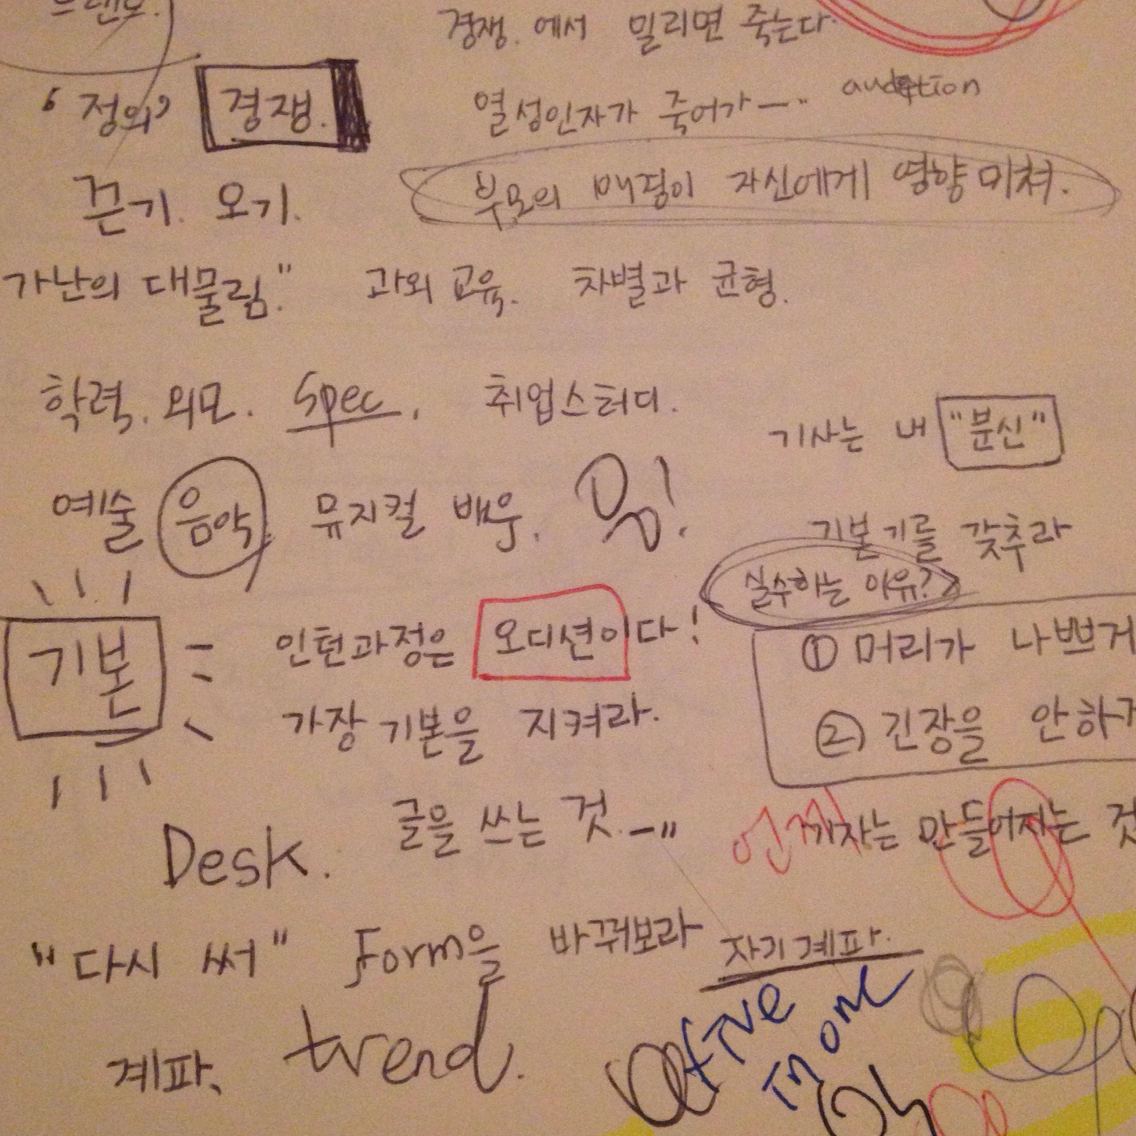 경쟁. 에서 밀리면 죽는다.
'정의' 경쟁.
열성인자가 죽어가
끈기. 오기.
부모의 자신에게 영향 미쳐.
가난의 대물림." 과외 교육. 차별과 균형.
학력. 외모. Spec. 취업스터디.
기사는 내 "분신"
예술 음악 뮤지컬 배우.
기본기를 갖추라
실수하는 이유?
기본
인턴과정은 오디션이다!
① 머리가 나쁘게
가장 기본을 지켜라.
② 긴장을 안하
글을 쓰는 것.
Desk.
기자는 만들어지는 것
"다시 써" Form을 바꿔보라
자기계파.
계파. trend.
five
in one